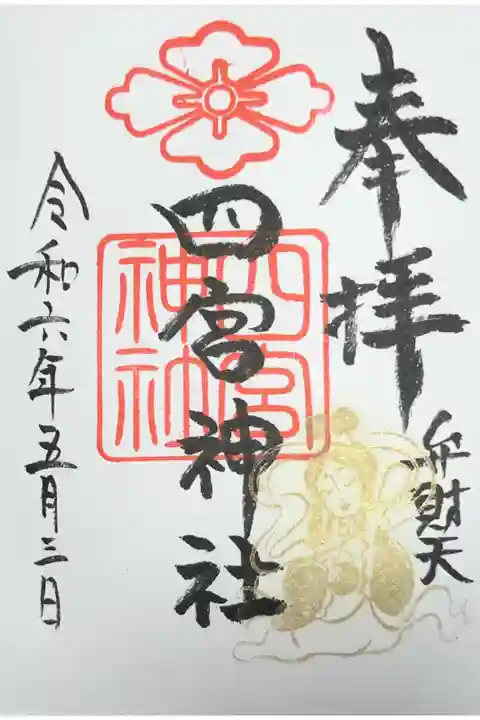 奉拝
弁財天
四宮神社
四宮神社
令和六年五月三日